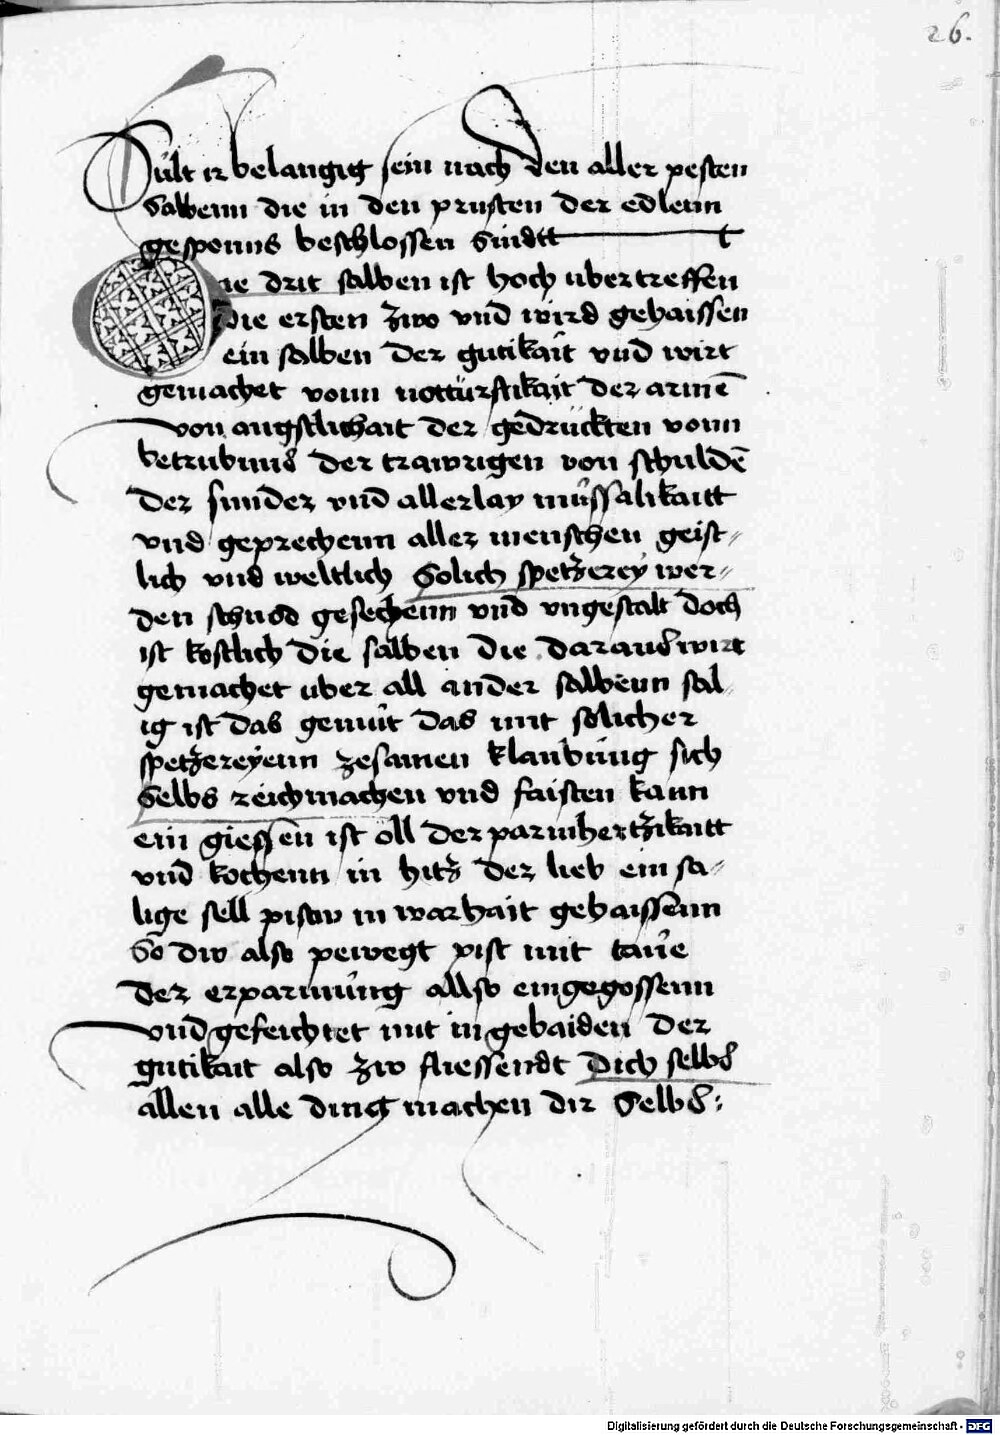 26.
Sult ir belangig sein nach den aller pesten
Salbenn die in den prusten der edlenn
gesponns beschlossen Sindtt t
Die drit salben ist hoch ubertreffen
die ersten zwo vnd wird gehaissen
ein salben der gutikait vnd wirt
gemachet vonn notturftikait der armē
von angstlichait der gedruckten vonn
betrubnus der trawrigen von schuldē
der sunder vnd allerlay müssalikaitt
vnd geprechenn aller menschen geist-
lich vnd weltlich Solich spetzerey wer-
den schnod gesechenn vnd vngestalt doch
ist kostlich die salben die daraus wirt
gemachet uber all ander salbenn sal-
ig ist das gemüt das mit solicher
spetzereyenn zesamen klaubung sich
Selbs reichmachen vnd faisten kann
ein giessen ist öll der parmhertzikaitt
vnd kochenn in hitz der lieb ein sa-
lige sell pistw in warhait gehaissenn
So dw also pewegt pist mit
der erparmüng allso eingegossenn
vnd gefeichtet mit ingebaiden der
gutikait also zw fliessendt Dich selbs
allen alle ding machen dir Selbs:
Digitalisierung gefördert durch die Deutsche Forschungsgemeinschaft - DFG